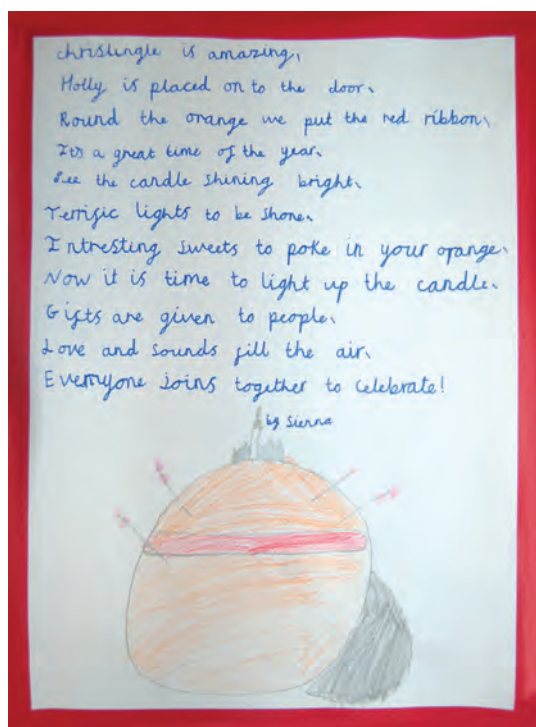 christingle is amazing,
Holly is placed on to the door.
Round the orange we put the red ribbon.
Its a great time of the year.
See the candle shining bright.
Terrific lights to be shone.
Intresting sweets to poke in your orange.
Now it is time to light up the candle.
Gifts are given to people.
Love and sounds fill the air.
Everyone joins together to celebrate!
by Sienna